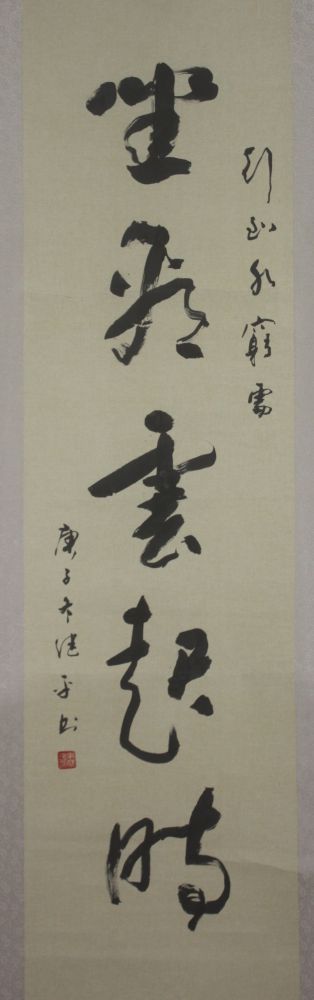 行到水窮處
坐看雲起時
庚子